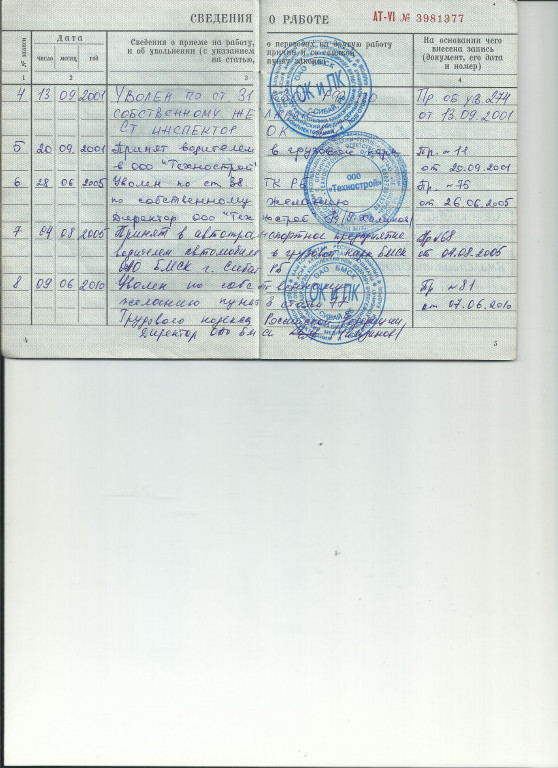 СВЕДЕНИЯ О РАБОТЕ АТ-VI № 3981377
№ записи
Дата
число месяц год
Сведения о приеме на работу, о переводах на другую работу
и об увольнении (с указанием причин и со ссылкой
на статью, пункт закона)
На основании чего
внесена запись
(документ, его дата
и номер)
1 2 3 4
4 13 09 2001 Уволен по ст. 31 Пр. об ув. 274
собственному же от 13.09.2001
Ст инспектор ОК
5 20 09 2001 Принят водителем в грузовой парк Пр. №11
в ООО "Технострой" от 20.09.2001
6 28 06 2005 Уволен по ст 38. ТК РБ Пр. №76
по собственному желанию от 26.06.2005
Директор ООО "Технострой"
7 04 08 2005 Принят в автотранспортное предприятие Пр №68
водителем автомобиля в грузовой парк БМСК от 04.08.2005
ОАО БМСК г. Сибай РБ
8 09 06 2010 Уволен по собственному Пр №81
желанию пункт 3 статьи 77 от 07.06.2010
Трудового кодекса Российской Федерации
Директор ОАО БМСК
ОАО БМСК
ОК и ПК
СИБАЙ
ООО
«Технострой»
ОАО БМСК
ОК и ПК
СИБАЙ
4 5